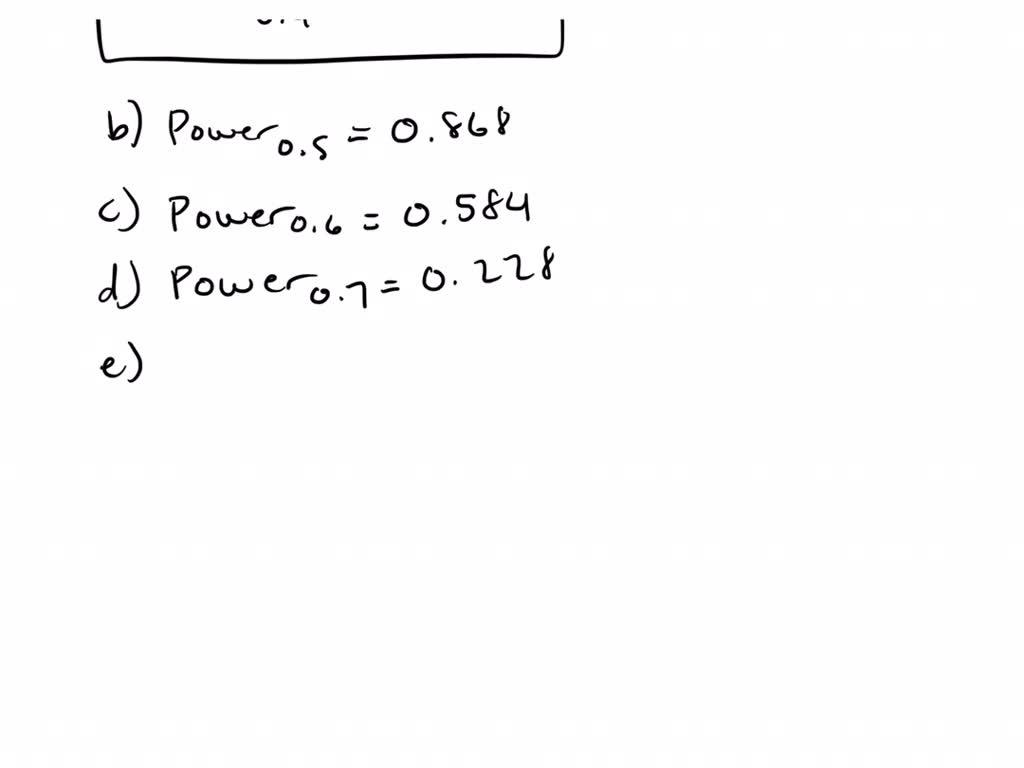 b) Power0.5 = 0.868
c) Power0.6 = 0.584
d) Power0.7 = 0.228
e)